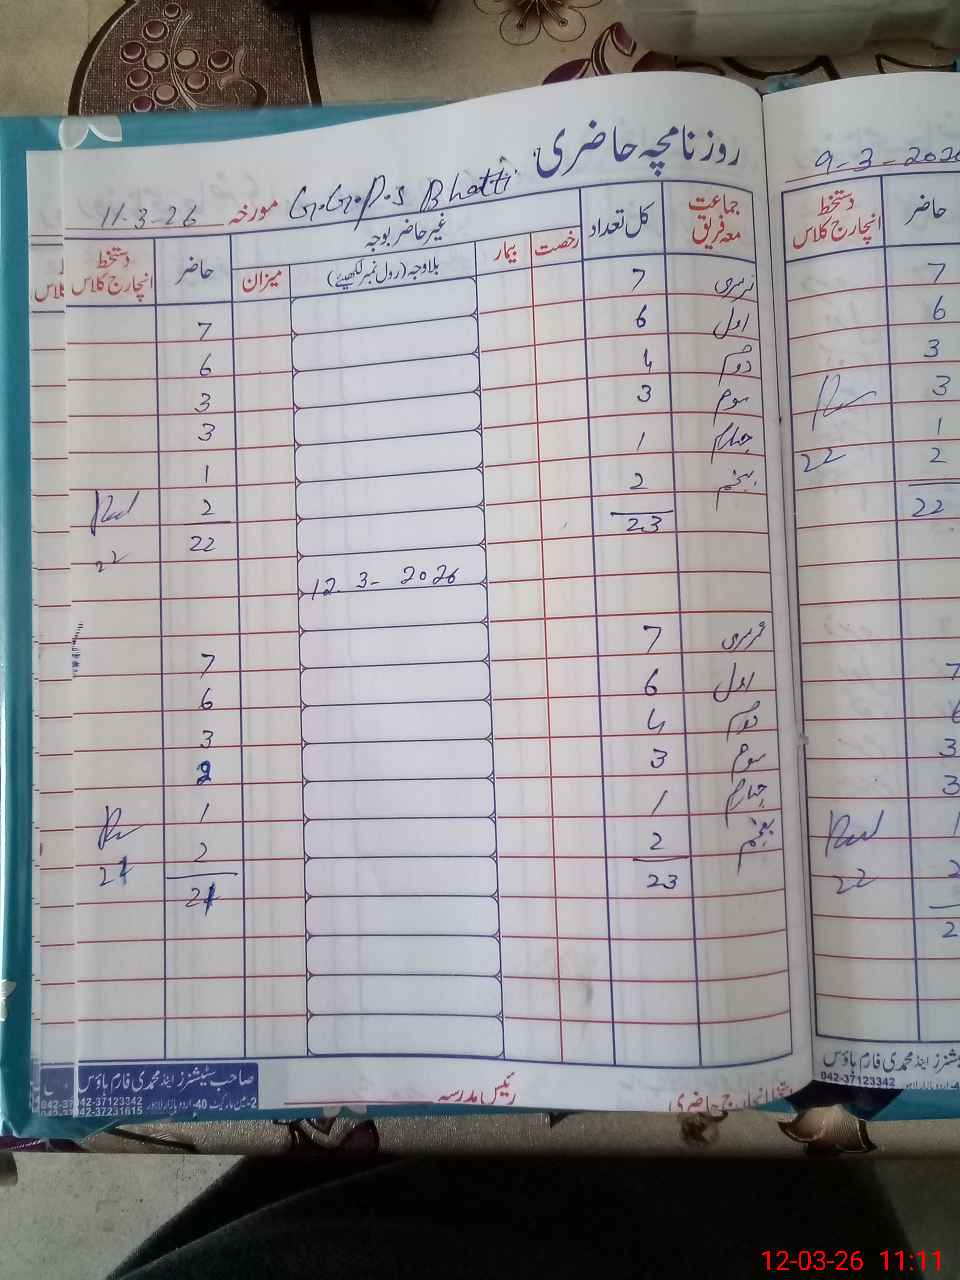 روزنامچہ حاضری
G.G.P.S Bhatti
مورخہ 11-3-26
جماعت معہ فریق
کل تعداد
غیر حاضر بوجہ
رخصت
بیمار
بلاوجہ (رول نمبر لکھیئے)
میزان
حاضر
دستخط انچارج کلاس
نرسری 7 7
اول 6 6
دوم 4 3
سوم 3 3
چہارم 1 1
پنجم 2 2
23 22
22
12-3-2026
نرسری 7 7
اول 6 6
دوم 4 3
سوم 3 2
چہارم 1 1
پنجم 2 2
23 21
21
رئیس مدرسہ
دستخط انچارج حاضری
صاحب سٹیشنرز اینڈ محمدی فارم ہاؤس
2-مین مارکیٹ 40-اردو بازار لاہور
042-37123342
042-37231615
9-3-2026
حاضر
دستخط انچارج کلاس
7
6
3
3
1
2
22
22
7
6
3
3
1
2
22
2
042-37123342
12-03-26 11:11